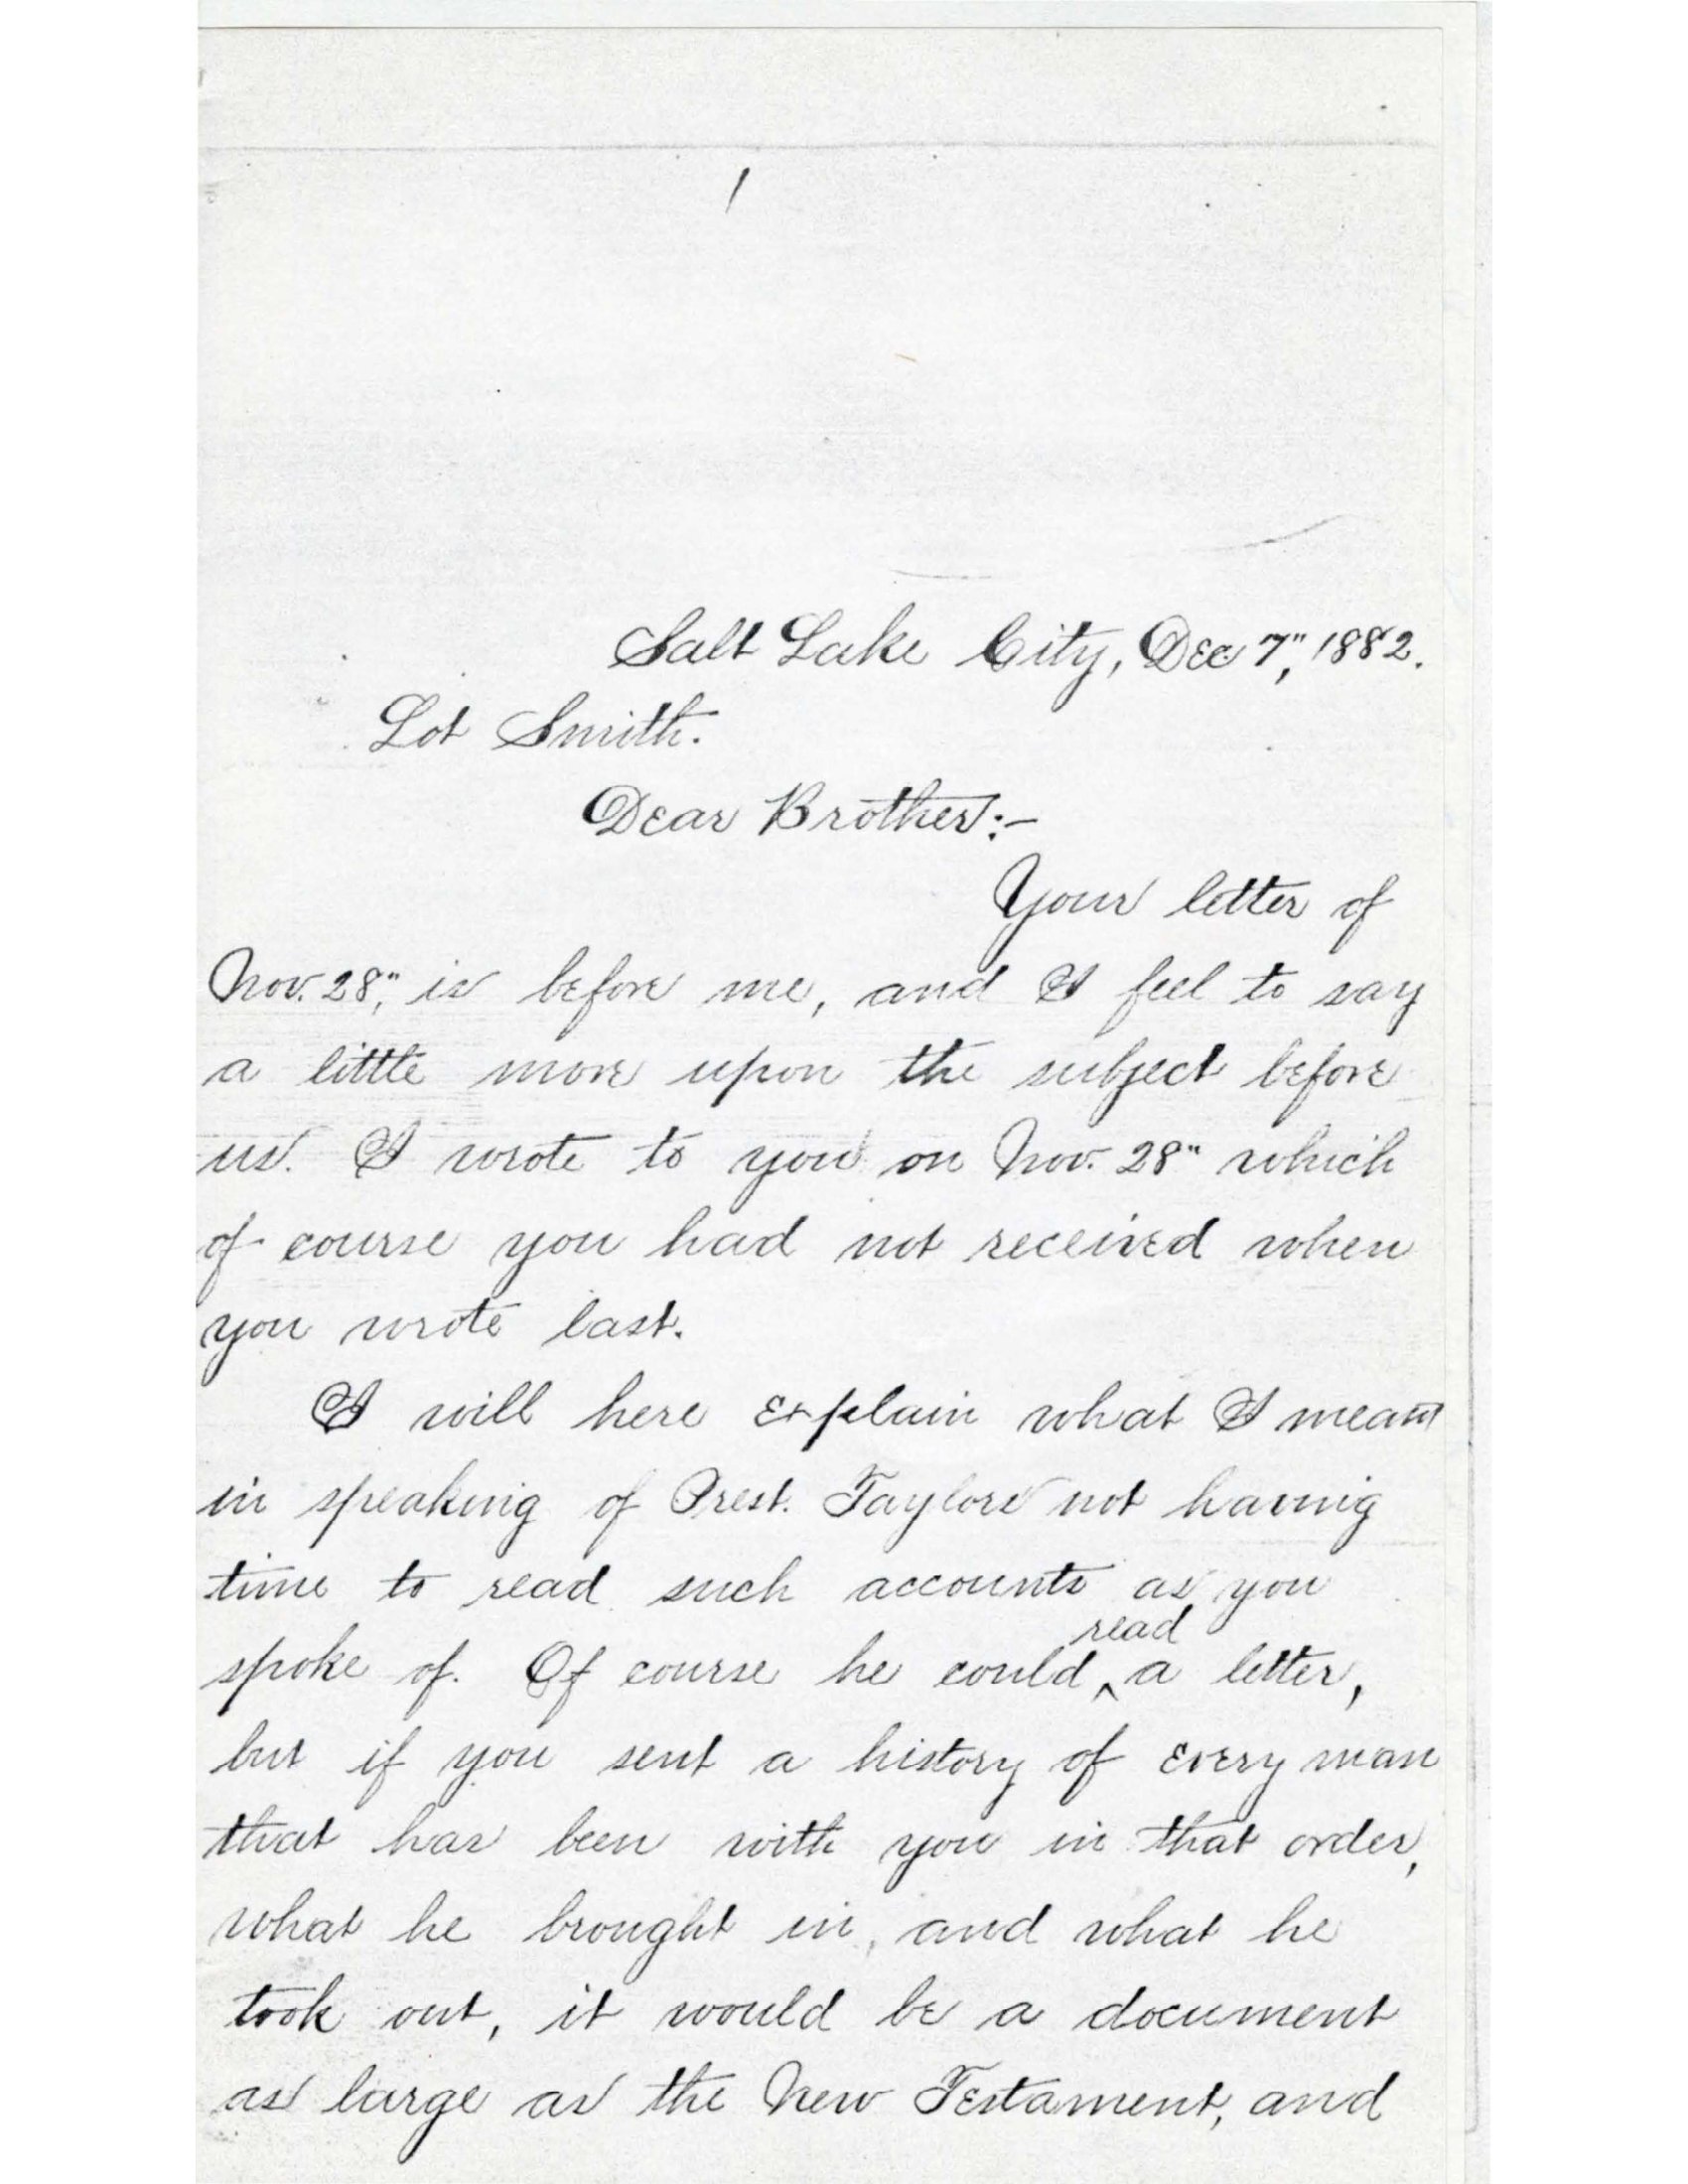 1
Salt Lake City, Dec 7", 1882.
Lot Smith.
Dear Brother:-
Your letter of
Nov. 28", is before me, and I feel to say
a little more upon the subject before
us. I wrote to you on Nov. 28" which
of course you had not received when
you wrote last.
I will here explain what I meant
in speaking of Prest. Taylore not having
time to read such accounts as you
spoke of. Of course he could ^read a letter,
but if you sent a history of every man
that has been with you in that order,
what he brought in, and what he
took out, it would be a document
as large as the New Testament, and